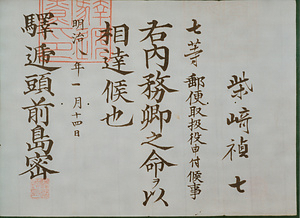 柴﨑禎七
七等郵便取扱役申付候事
右内務卿之命ヲ以
相達候也
明治八年一月十四日
驛逓頭前島密